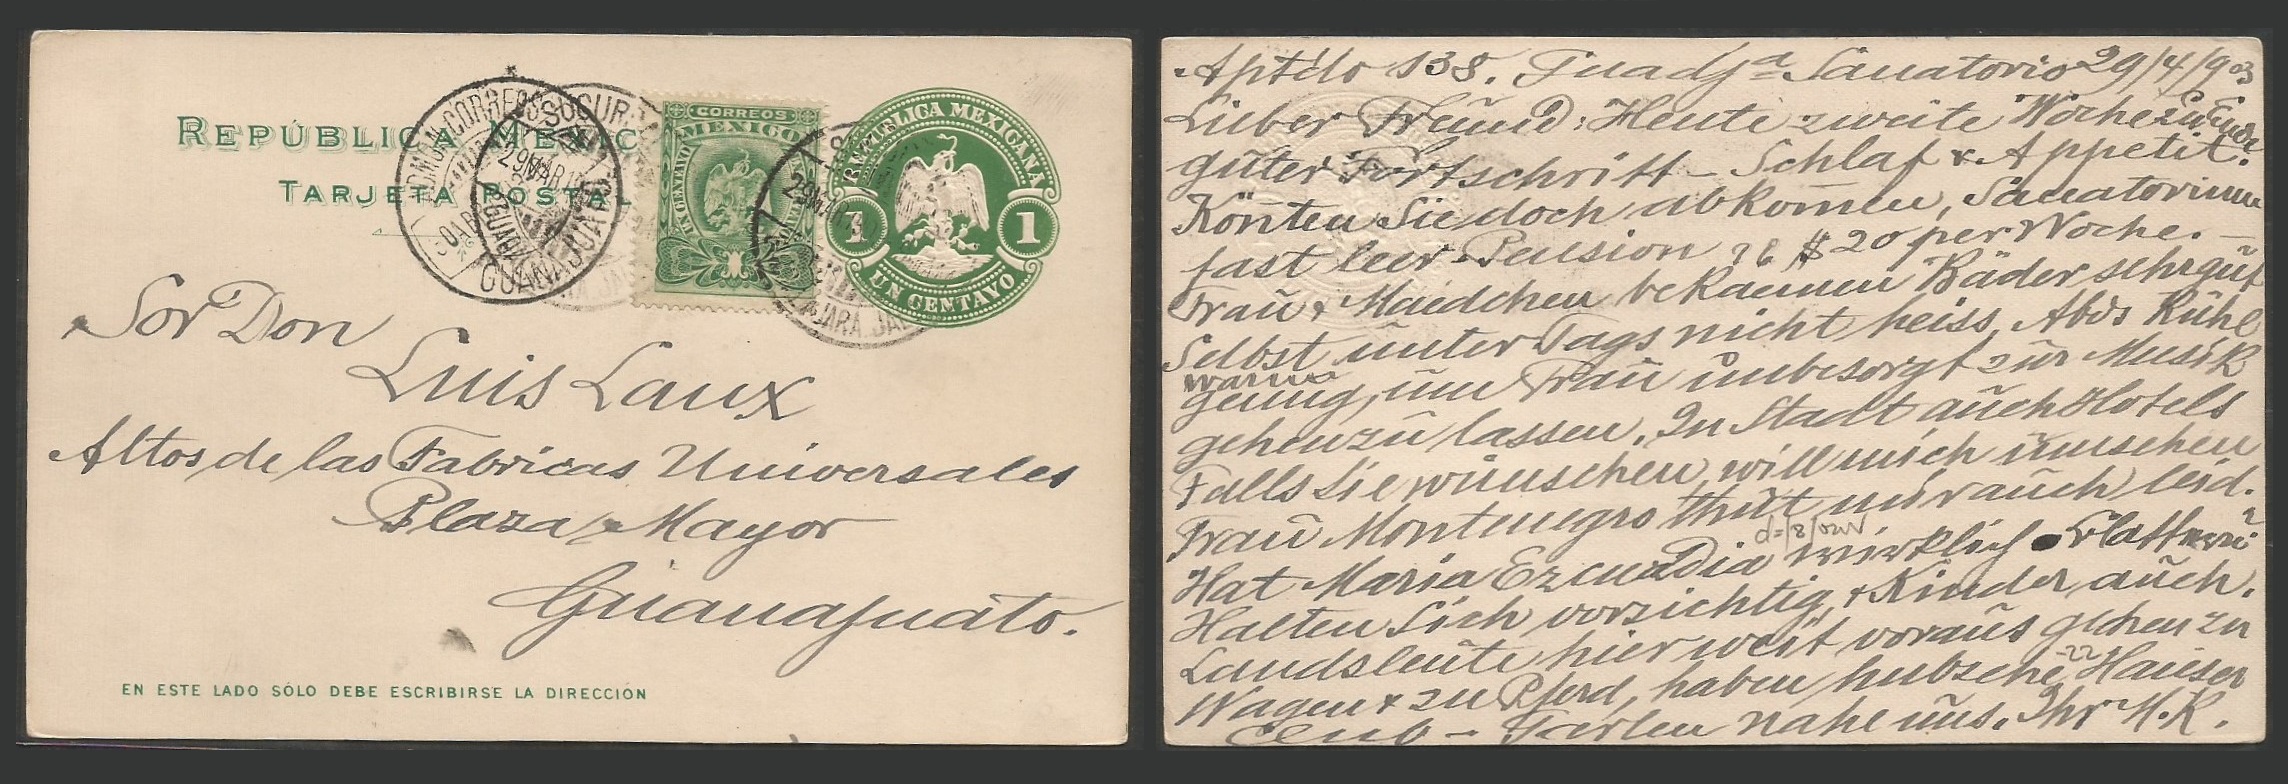 REPÚBLICA MEXIC
TARJETA POSTAL
CORREOS
MEXICO
UN CENTAVO
REPUBLICA MEXICANA
1 1
UN CENTAVO
29 MAR
GUANAJUATO
Sor Don
Luis Laux
Altos de las Fabricas Universales
Plaza Mayor
Guanajuato.
EN ESTE LADO SÓLO DEBE ESCRIBIRSE LA DIRECCIÓN
Aptdo 138. Guadja Sanatorio 29/4/903
Lieber Freund: Heute zweite Woche zu Ende
guter Fortschritt – Schlaf & Appetit.
Könten Sie doch abkom̄en, Sanatorium
fast leer – Pension $20 per Woche. –
Frau & Maedchen bekaemen Bäder sehr gut
Selbst unter Tags nicht heiss, Abds kühl
warm
genug, um Frau unbesorgt zur Musik
gehen zu lassen. In Stadt auch Hotels
Falls Sie wünschen, will mich umsehen
Frau Montenegro thut mir auch leid.
Hat Maria Ezcurdia wirklich Blattern?
Halten Sich vorsichtig, & Kinder auch.
Landsleute hier weit voraus gehen zu
Wagen & zu Pferd, haben hubsche Haeuser
Club – nahe uns. Ihr M.K.